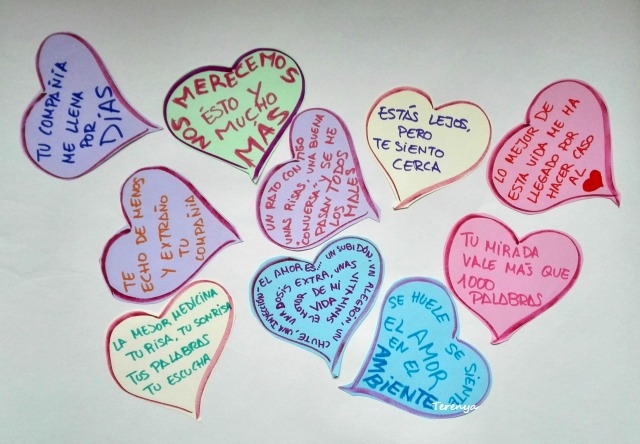 TU COMPAÑÍA
ME LLENA
POR
DÍAS
NOS MERECEMOS
ÉSTO Y
MUCHO
MÁS
UN RATO CONTIGO
UNAS RISAS, UNA BUENA
"CONVERSA" Y SE ME
PASAN TODOS
LOS
MALES
ESTÁS LEJOS,
PERO
TE SIENTO
CERCA
LO MEJOR DE
ESTA VIDA ME HA
LLEGADO POR
HACER CASO
AL
TE
ECHO DE MENOS
Y EXTRAÑO
TU
COMPAÑÍA
TU MIRADA
VALE MÁS QUE
1000
PALABRAS
LA MEJOR MEDICINA
TU RISA, TU SONRISA
TUS PALABRAS
TU ESCUCHA
EL AMOR ES... UN SUBIDÓN, UN ALEGRÓN, UN
CHUTE, UNA INYECCIÓN
UNA DOSIS EXTRA, UNAS
VITAMINAS
EL MOTOR DE MI
VIDA
SE HUELE, SE SIENTE
EL AMOR
EN EL
AMBIENTE
Terenya